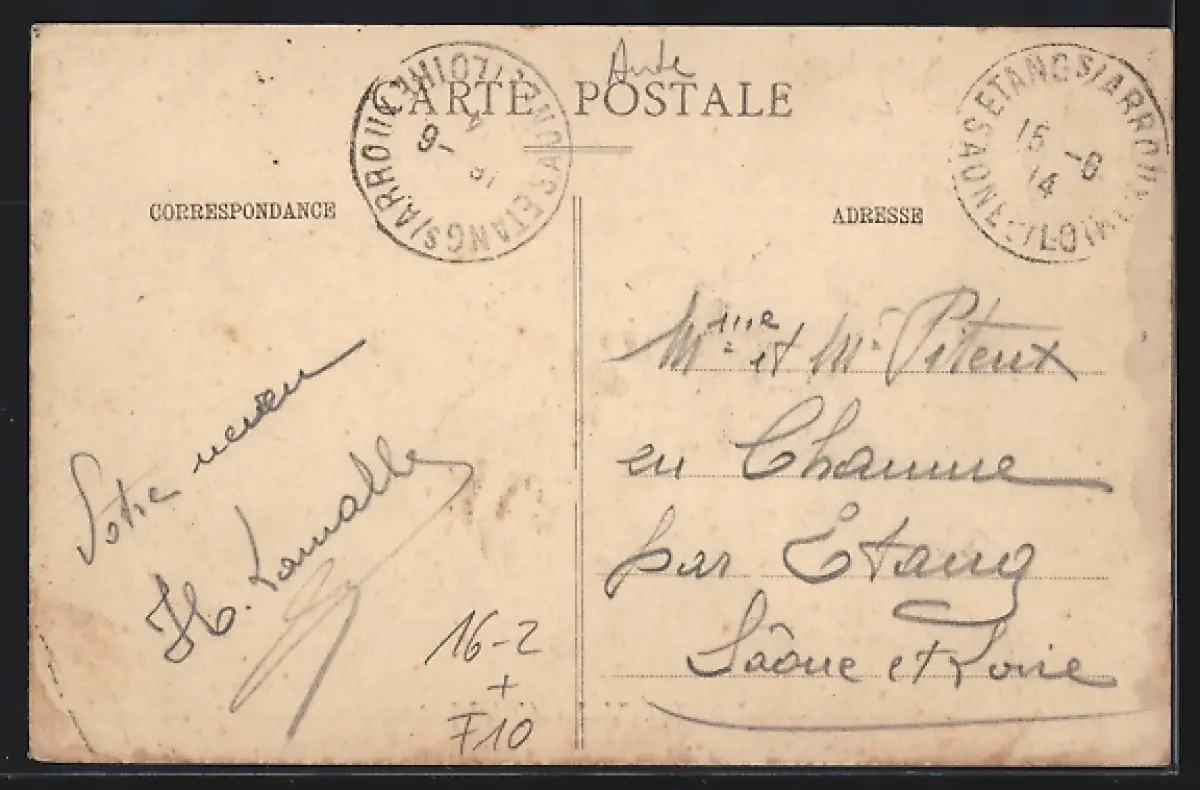 Aude
CARTE POSTALE
ETANGS/ARROUX SAONE-&-LOIRE
9-
ETANGS/ARROUX SAONE-&-LOIRE
15 -6
14
CORRESPONDANCE
ADRESSE
Votre neveu
H. Lamalle
16-2
+
F10
Mme et Mr Piteux
en Chaume
par Étang
Saône et Loire